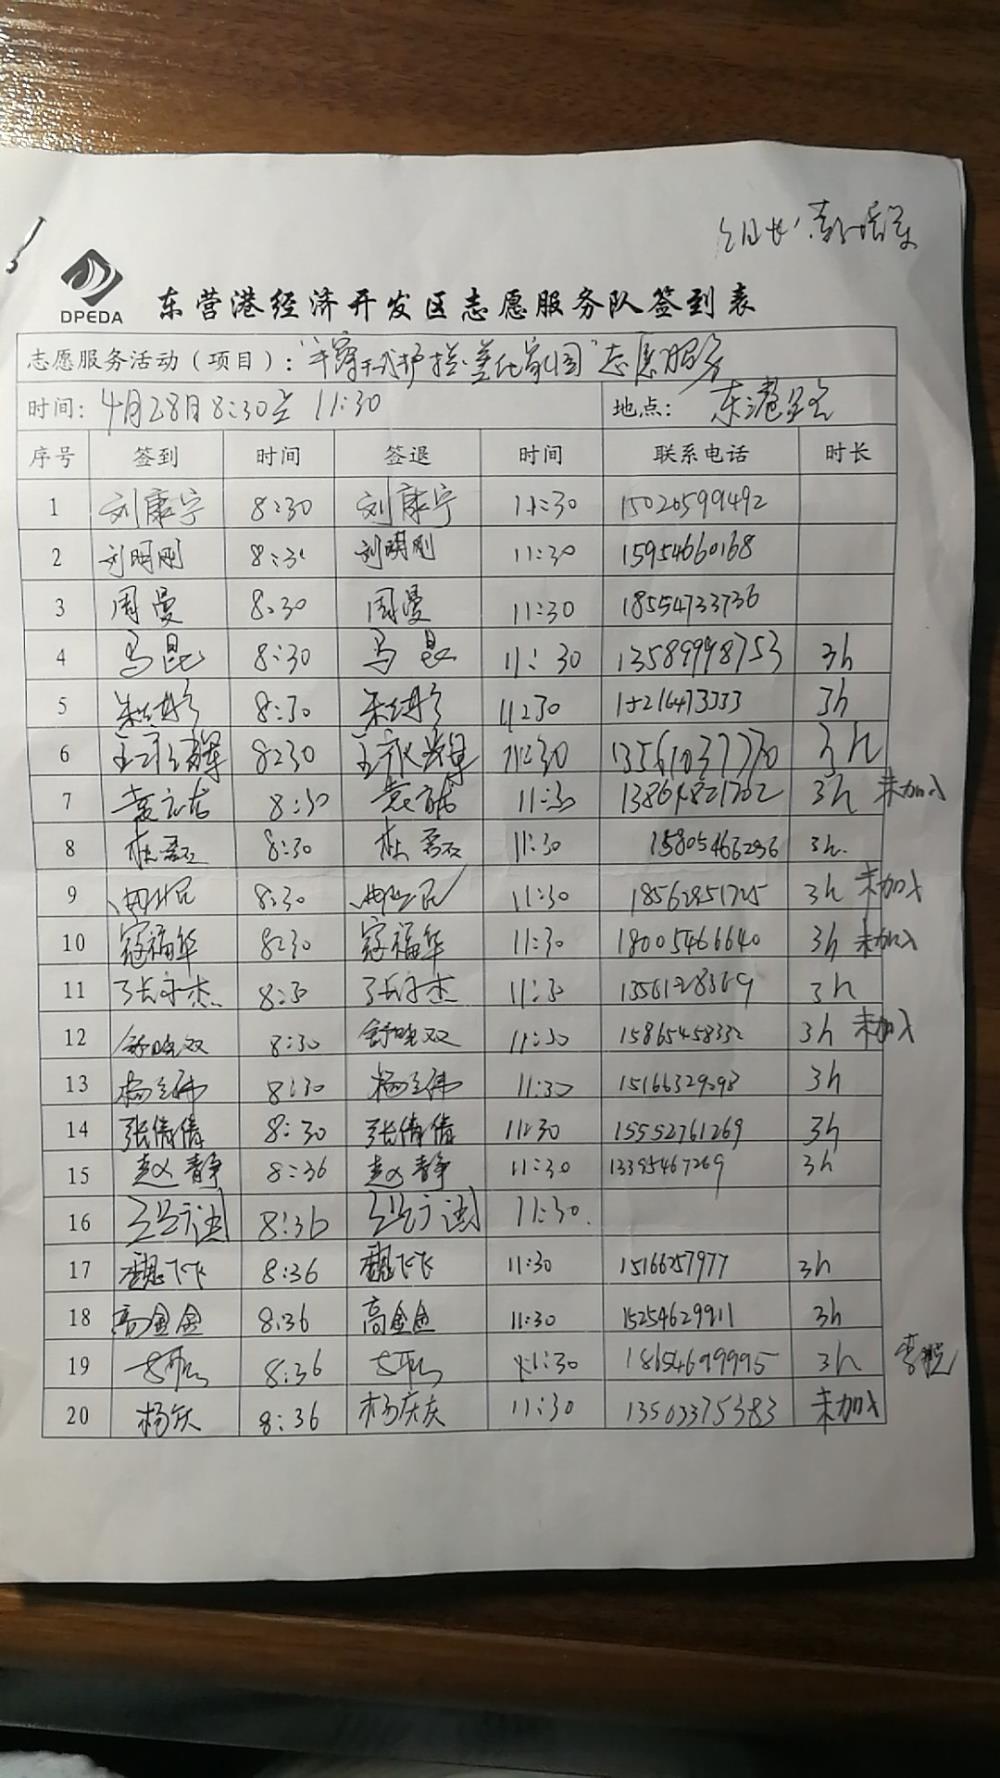 组长:
DPEDA
东营港经济开发区志愿服务队签到表
志愿服务活动（项目）： 志愿服务
时间: 4月28日 8:30 11:30 地点: 东港
序号 签到 时间 签退 时间 联系电话 时长
1 刘康宁 8:30 刘康宁 11:30 15020599492
2 刘明刚 8:30 刘明刚 11:30 15954660168
3 周曼 8:30 周曼 11:30 18554733736
4 马昆 8:30 马昆 11:30 13589998753 3h
5 8:30 11:30 15216473333 3h
6 8:30 11:30 13561037770 3h
7 8:30 11:30 13864821702 3h 未加入
8 8:30 11:30 15805463236 3h.
9 8:30 11:30 18562851725 3h 未加入
10 寇福华 8:30 寇福华 11:30 18005466640 3h 未加入
11 张守杰 8:30 张守杰 11:30 1356128369 3h
12 舒晓双 8:30 舒晓双 11:30 15865458332 3h 未加入
13 杨立伟 8:30 杨立伟 11:30 15166329098 3h
14 张倩倩 8:30 张倩倩 11:30 15552761269 3h
15 赵静 8:36 赵静 11:30 13395467269 3h
16 8:36 11:30.
17 魏飞飞 8:36 魏飞飞 11:30 15166257977 3h
18 高金金 8:36 高金金 11:30 15254629911 3h
19 8:36 11:30 18654699995 3h
20 杨庆 8:36 杨庆庆 11:30 13503375383 未加入